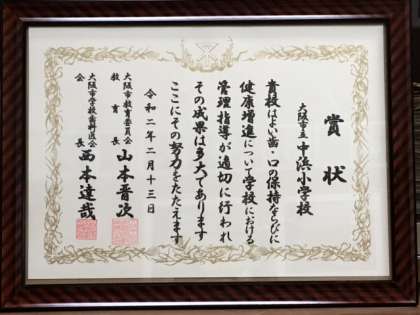 賞状
大阪市立 中浜小学校
貴校はよい歯・口の保持ならびに
健康増進について学校における
管理指導が適切に行われ
その成果は多大であります
ここにその努力をたたえます
令和二年二月十三日
大阪市教育委員会
教育長 山本晋次
大阪市学校歯科医会
会長 西本達哉